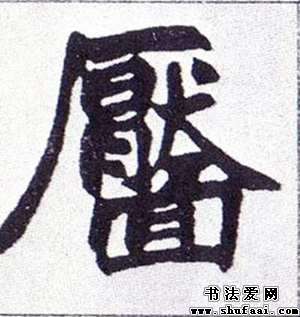 靨
书法爱网
www.shufaai.com